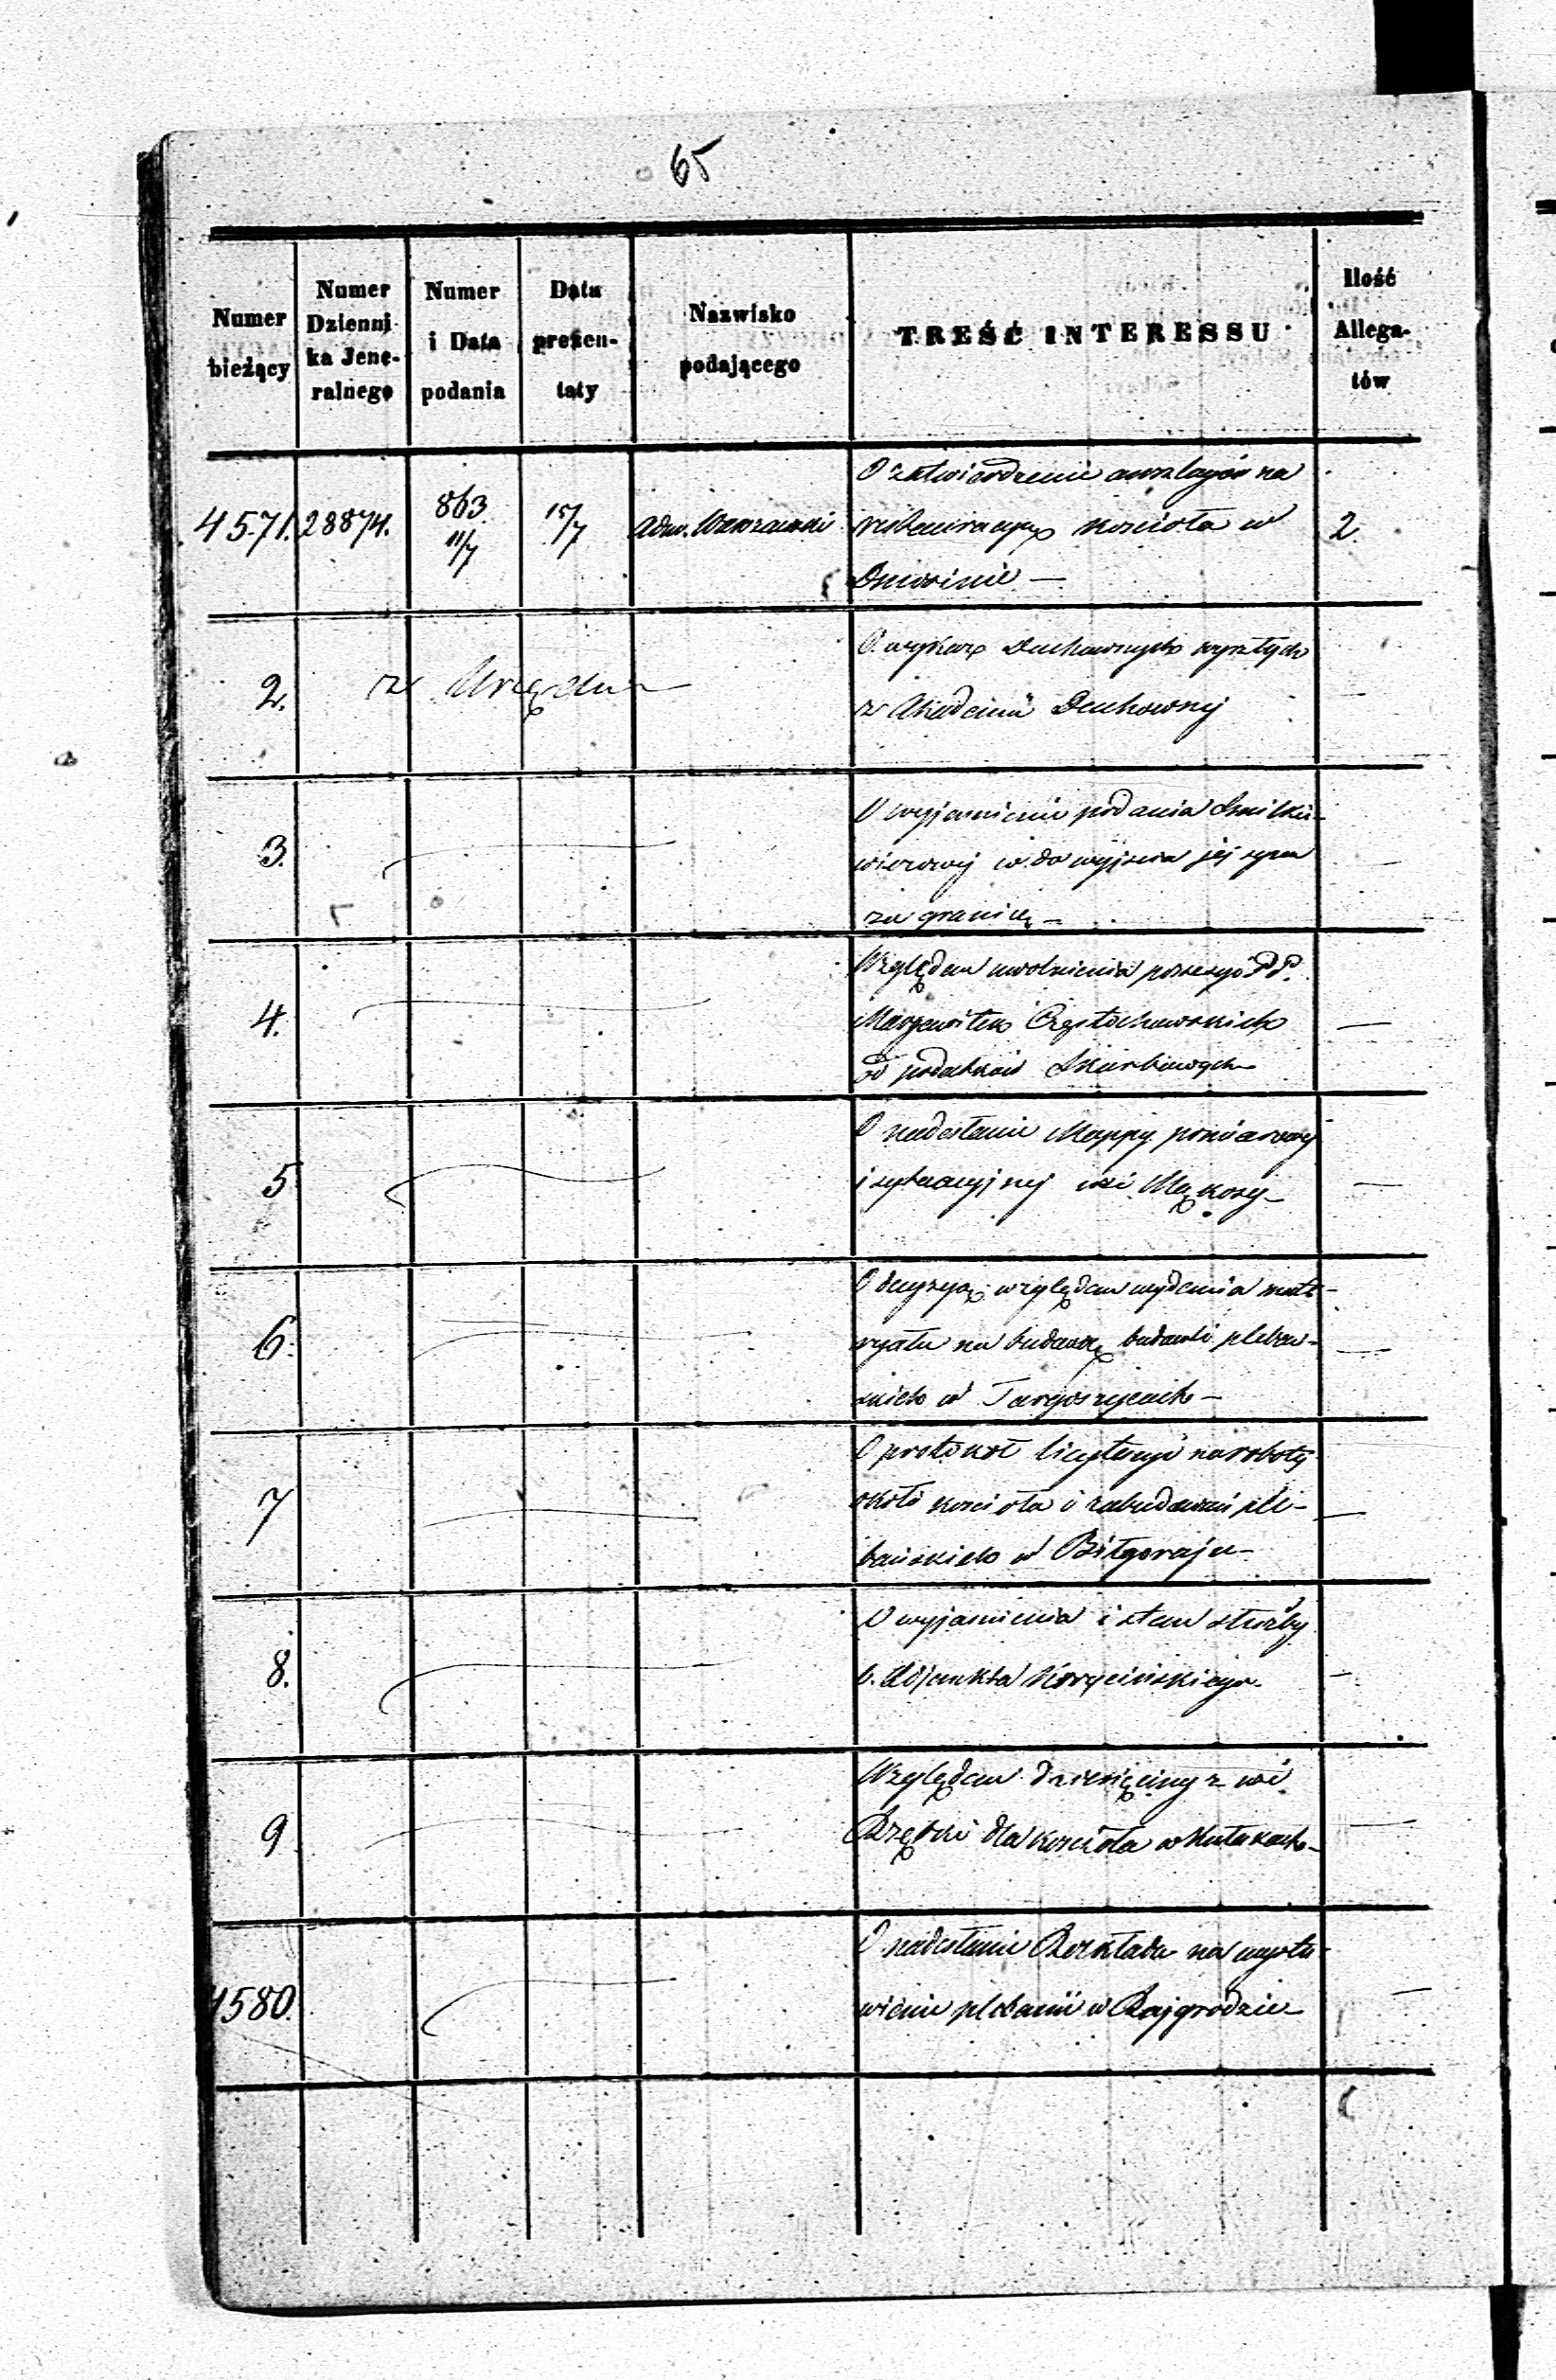 65
Numer bieżący
Numer Dzienni- ka Jene- ralnego
Numer i Data podania
Data prezen- taty
Nazwisko podającego
TREŚĆ INTERESSU
Ilość Allega- tów
4571. 28874. 863 11/7 15/7 Adm. Warszawski 2
O zatwierdzenie anszlagów na
restauracyą kościoła w
2. z Urzędu
O wykaz Duchownych wyszłych
z Akademii Duchownej
3.
O wyjaśnienie podania
w. do wyjścia jej syna
za granicę
4.
Względem uwolnienia possesyi PP.
Maryawitek Częstochowskich
od podatków Skarbowych
5
O nadesłanie Mappy pomiarowej
i sytuacyjnej wsi Mąkosy
6.
O decyzyą względem wydania mate-
ryału na budowę budowli pleba-
nskich w Targoszycach
7
O protokół licytacyi na roboty
około kościoła i zabudowań ple-
bańskich w Biłgoraju
8.
O wyjaśnienia i stan służby
b. Adjunkta Korycińskiego
9
Względem dziesięciny z wsi
dla kościoła w
4580.
O nadesłanie Rozkładu na wysta-
wienie plebanii w Rajgrodzie